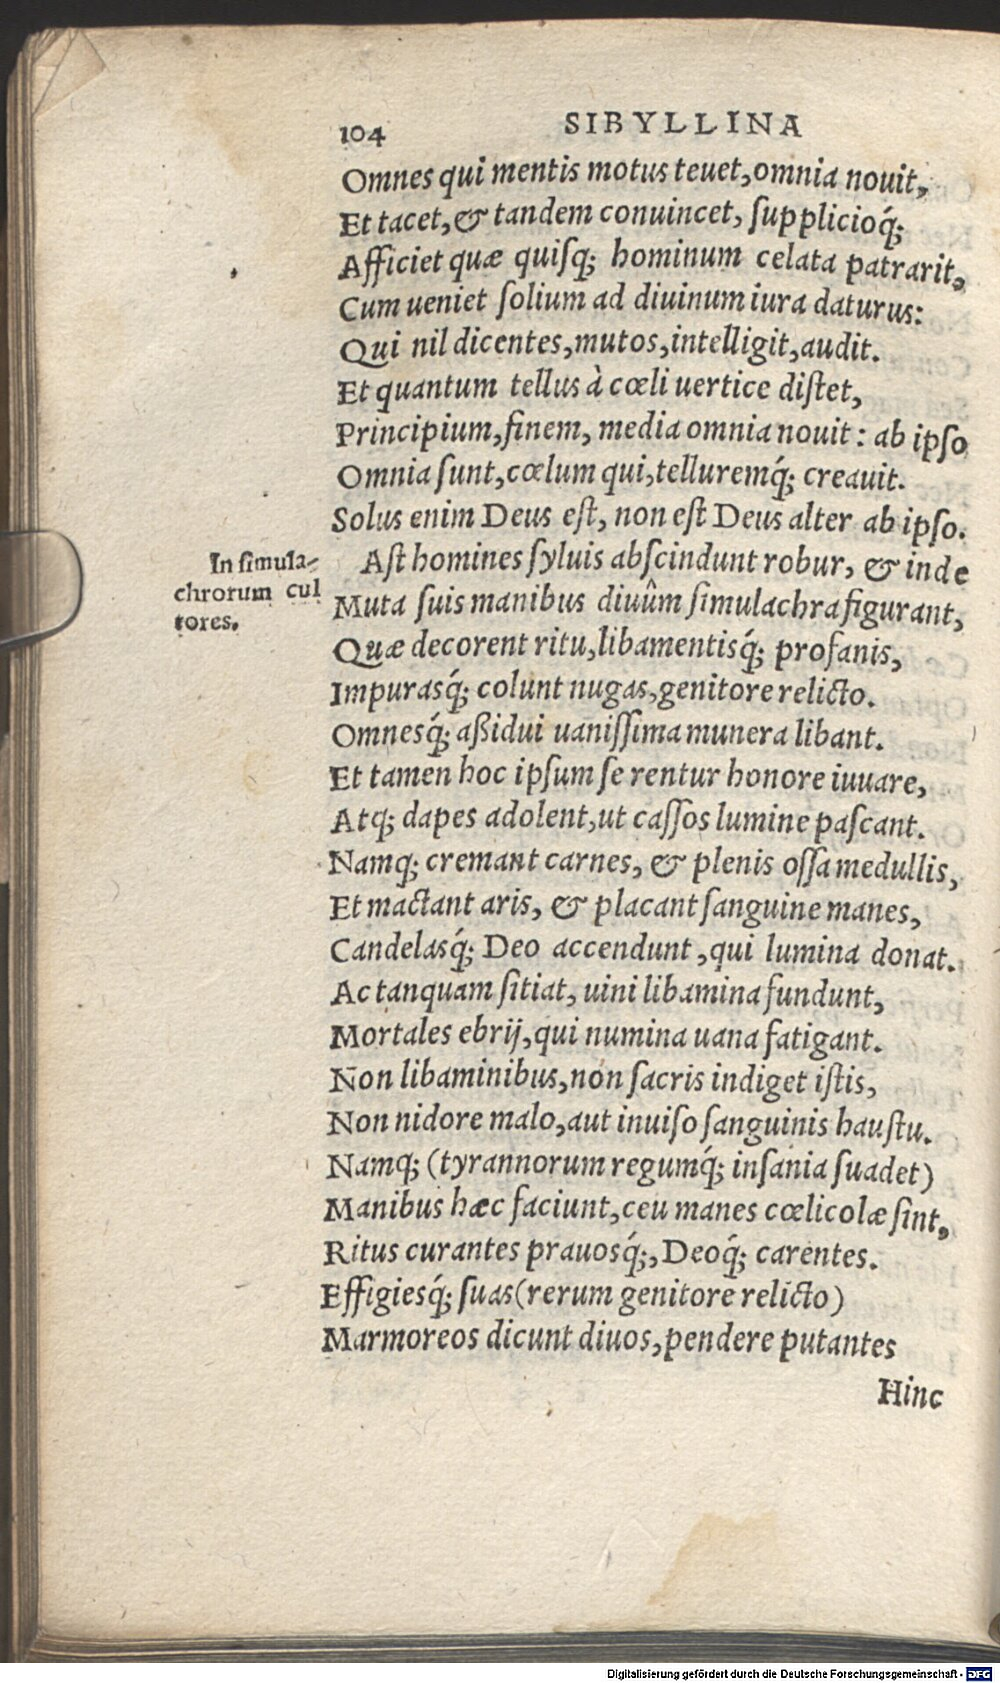 104 SIBYLLINA
Omnes qui mentis motus teuet, omnia nouit,
Et tacet, & tandem conuincet, ſupplicioq́;
Afficiet quæ quiſq; hominum celata patrarit,
Cum ueniet ſolium ad diuinum iura daturus:
Qui nil dicentes, mutos, intelligit, audit.
Et quantum tellus à cœli uertice diſtet,
Principium, finem, media omnia nouit: ab ipſo
Omnia ſunt, cœlum qui, telluremq́; creauit.
Solus enim Deus eſt, non eſt Deus alter ab ipſo.
In ſimula-
chrorum cul
tores.
Aſt homines ſyluis abſcindunt robur, & inde
Muta ſuis manibus diuûm ſimulachra figurant,
Quæ decorent ritu, libamentisq́; profanis,
Impurasq́; colunt nugas, genitore relicto.
Omnesq́; aßidui uaniſſima munera libant.
Et tamen hoc ipſum ſe rentur honore iuuare,
Atq; dapes adolent, ut caſſos lumine paſcant.
Namq; cremant carnes, & plenis oſſa medullis,
Et mactant aris, & placant ſanguine manes,
Candelasq́; Deo accendunt, qui lumina donat.
Ac tanquam ſitiat, uini libamina fundunt,
Mortales ebrij, qui numina uana fatigant.
Non libaminibus, non ſacris indiget iſtis,
Non nidore malo, aut inuiſo ſanguinis hauſtu.
Namq; (tyrannorum regumq́; inſania ſuadet)
Manibus hæc faciunt, ceu manes cœlicolæ ſint,
Ritus curantes prauosq́;, Deoq́; carentes.
Effigiesq́; ſuas (rerum genitore relicto)
Marmoreos dicunt diuos, pendere putantes
Hinc
Digitalisierung gefördert durch die Deutsche Forschungsgemeinschaft - DFG